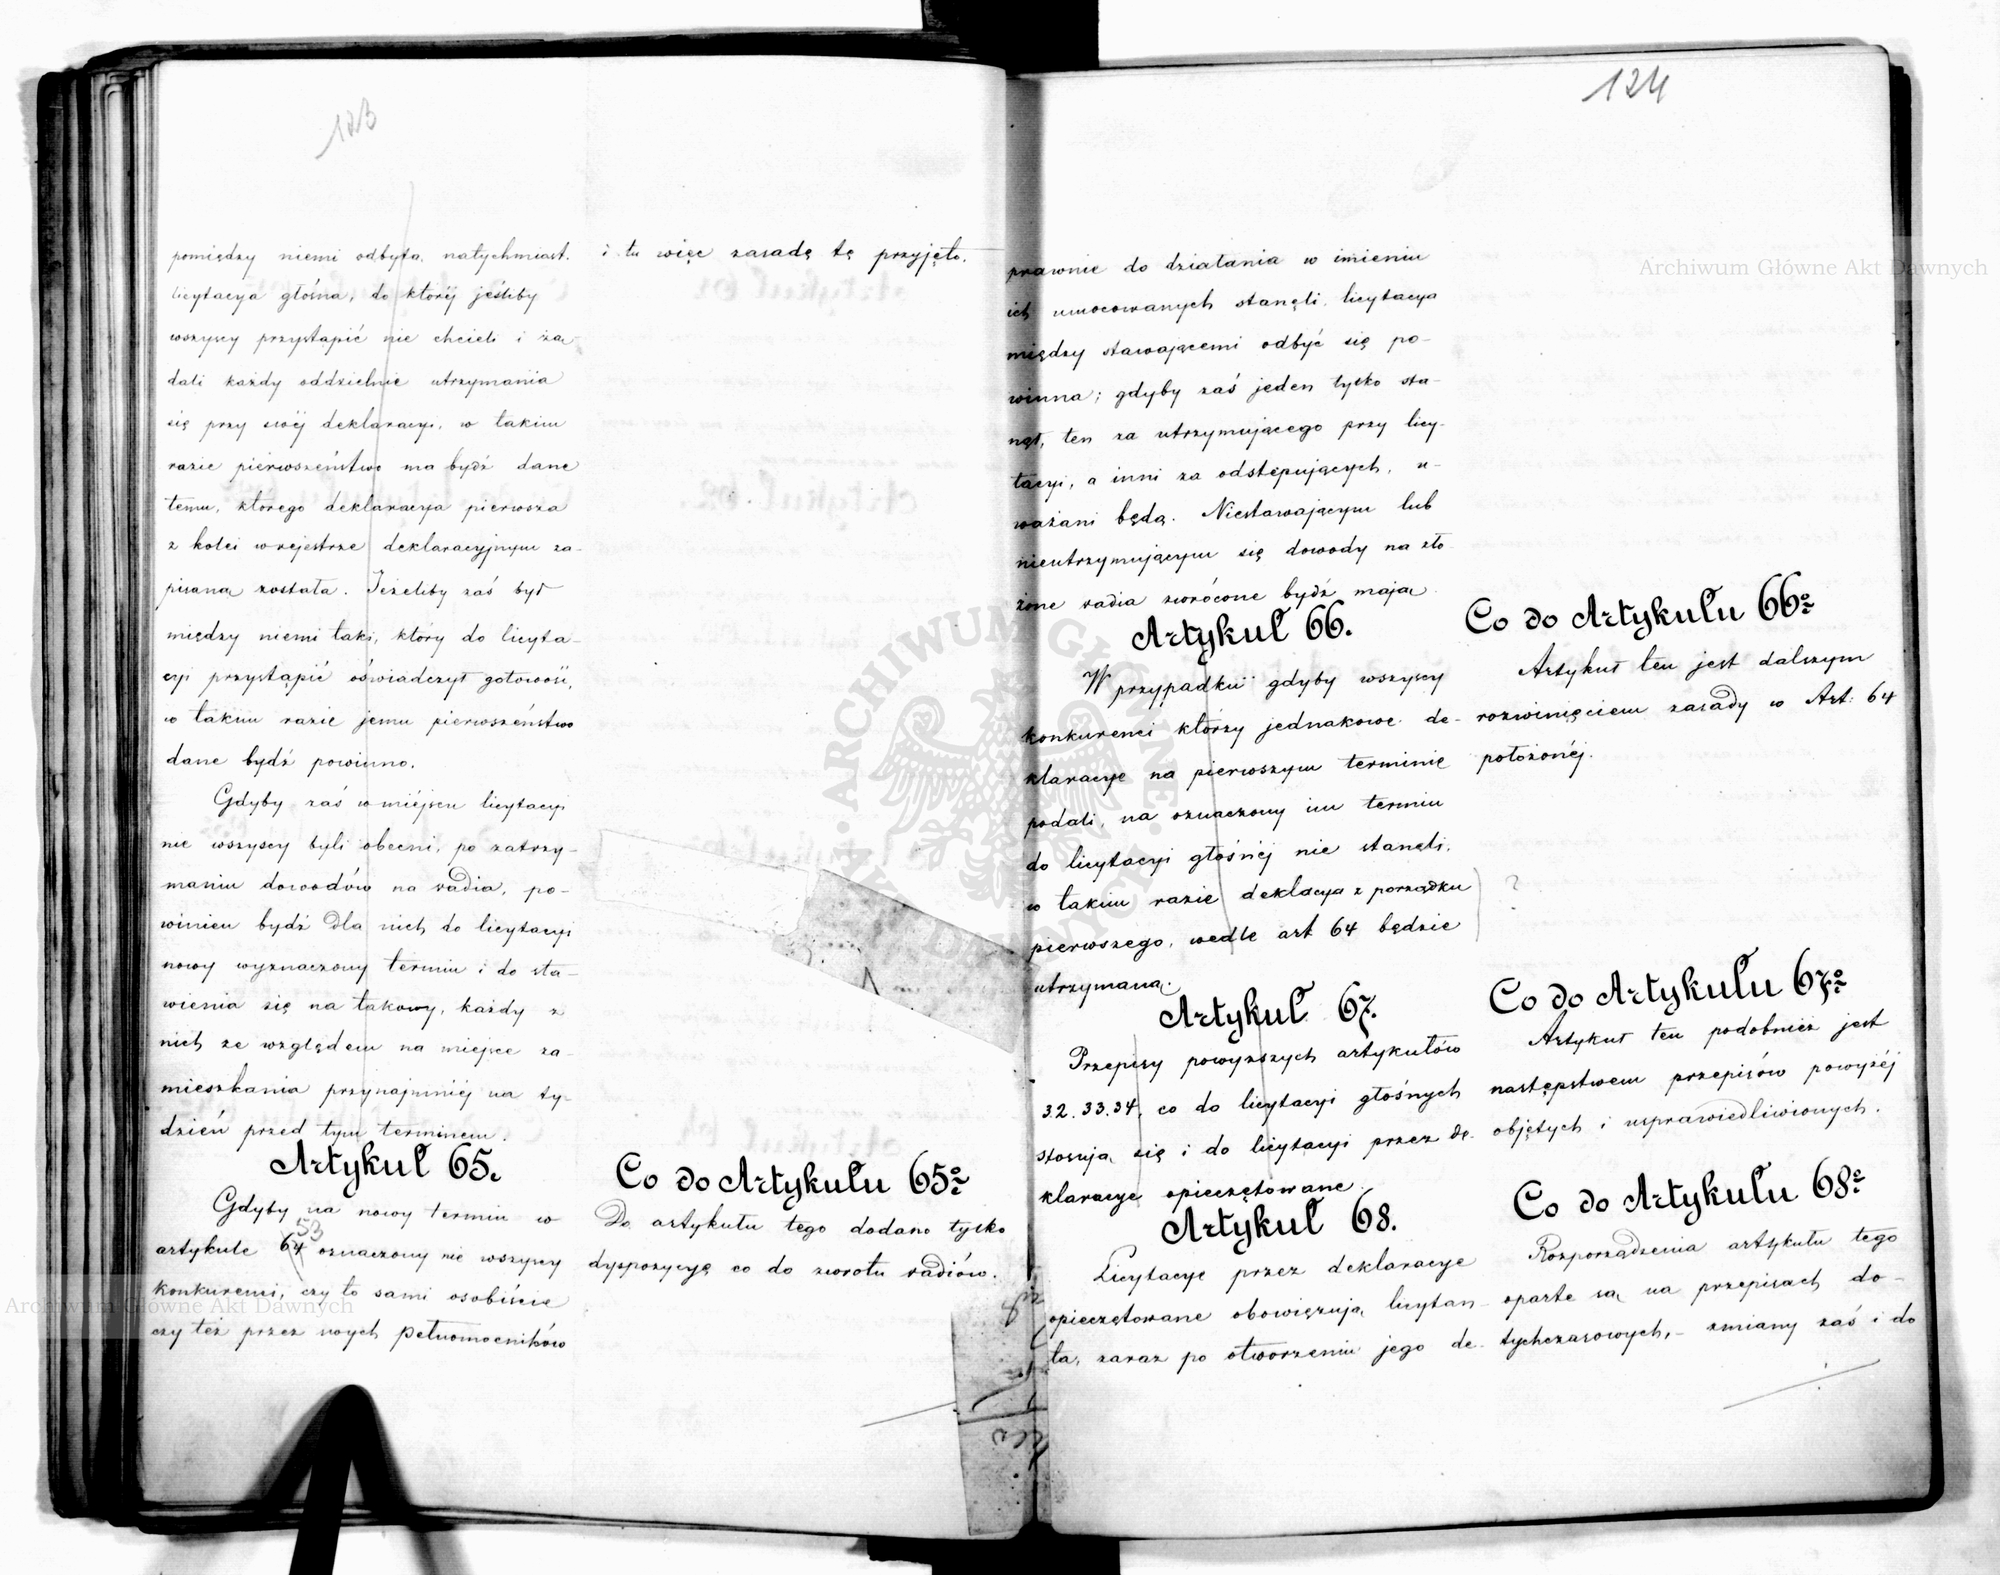 123
pomiędzy niemi odbyta natychmiast.
licytacya głośna, do któréj jeśliby
wszyscy przystąpić nie chcieli i żą-
dali każdy oddzielnie utrzymania
się przy swéj deklaracyi, w takim
razie piérwszeństwo ma bydź dane
temu, którego deklaracya pierwsza
z kolei w rejestrze deklaracyjnym za-
pisana została. Jeżeliby zaś był
między niemi taki, który do licyta-
cyi przystąpić oświadczył gotowość,
w takim razie jemu pierwszeństwo
dane bydź powinno.
Gdyby zaś w miéjscu licytacyi
nie wszyscy byli obecni, po zatrzy-
maniu dowodów na vadia, po-
winien bydź dla nich do licytacyi
nowy wyznaczony termin i do sta-
wienia się na takowy, każdy z
nich ze względem na miejsce za-
mieszkania przynajmniéj na ty-
dzień przed tym terminem.
Artykuł 65.
Gdyby na nowy termin w
53
artykule 64 oznaczony nie wszyscy
konkurenci, czy to sami osobiście
czy też przez swych pełnomocników
i tu więc zasadę tę przyjęto.
Co do Artykułu 65º
Do artykułu tego dodano tylko
dyspozycyę co do zwrotu vadiów.
124
prawnie do działania w imieniu
ich umocowanych stanęli, licytacya
między stawającemi odbyć się po-
winna; gdyby zaś jeden tylko sta-
nął, ten za utrzymującego przy licy-
tacyi, a inni za odstępujących, u-
ważani będą. Niestawającym lub
nieutrzymującym się dowody na zło-
żone vadia zwrócone bydź mają.
Artykuł 66.
W przypadku gdyby wszyscy
konkurenci którzy jednakowe de-
klaracye na pierwszym terminie
podali, na oznaczony im termin
do licytacyi głośnéj nie stanęli,
w takim razie deklacya z porządku
pierwszego, wedle art 64 będzie
utrzymaną.
Artykuł 67.
Przepisy powyższych artykułów
32. 33. 34, co do licytacyi głośnych
stosują się i do licytacyi przez de-
klaracye opieczętowane.
Artykuł 68.
Licytacye przez deklaracye
opieczętowane obowięzują licytan-
ta, zaraz po otworzeniu jego de-
Co do Artykułu 66º
Artykuł ten jest dalszym
rozwinięciem zasady w Art: 64
położonéj.
?
Co do Artykułu 67º
Artykuł ten podobnież jest
następstwem przepisów powyżéj
objętych i usprawiedliwionych.
Co do Artykułu 68º
Rozporządzenia artykułu tego
oparte są na przepisach do-
tychczasowych, - zmiany zaś i do
Archiwum Główne Akt Dawnych
ARCHIWUM GŁÓWNE AKT DAWNYCH
Archiwum Główne Akt Dawnych